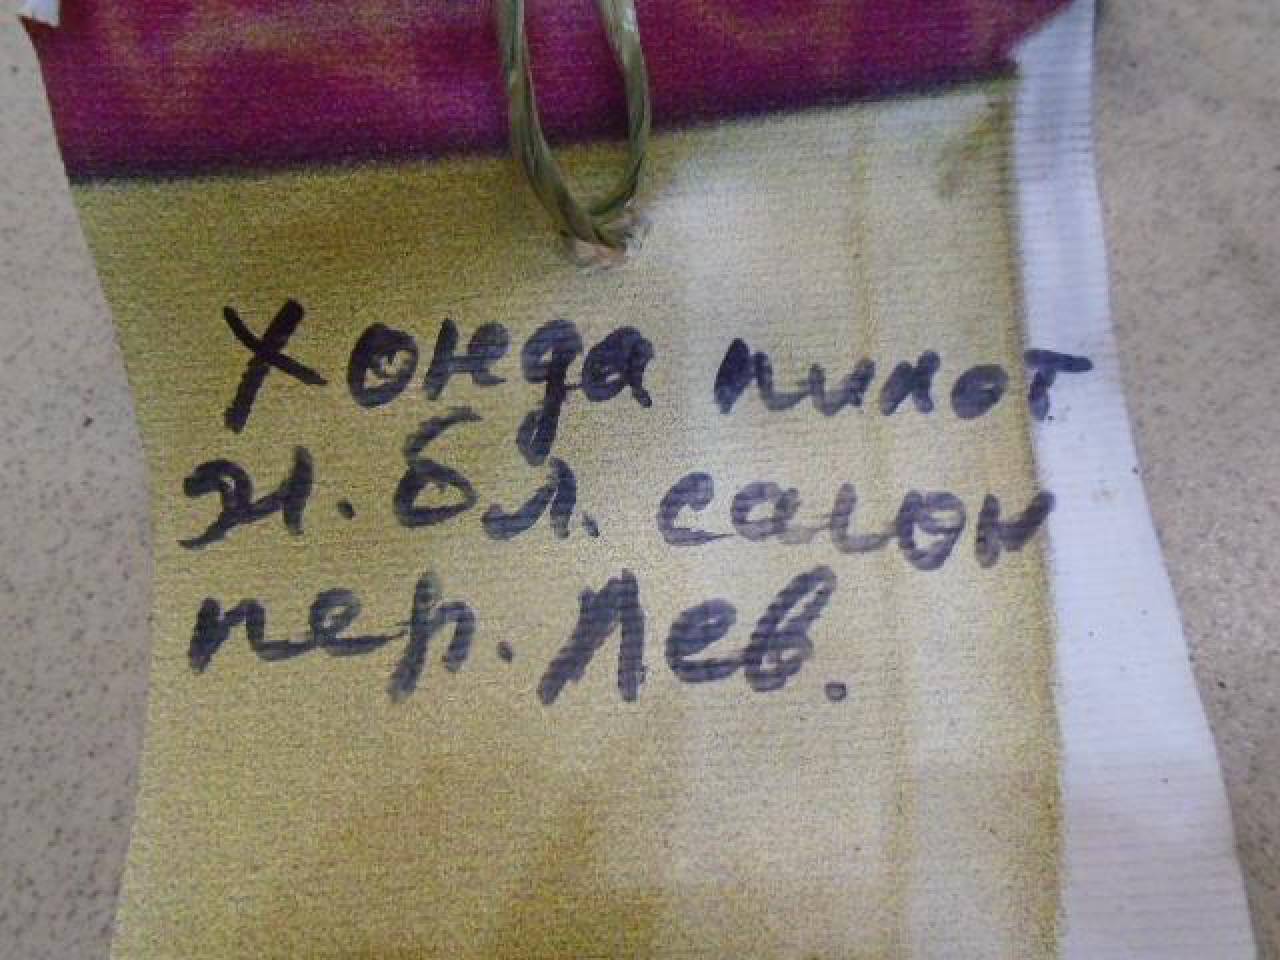 Хонда пилот
эл. бл. салон
пер. Лев.